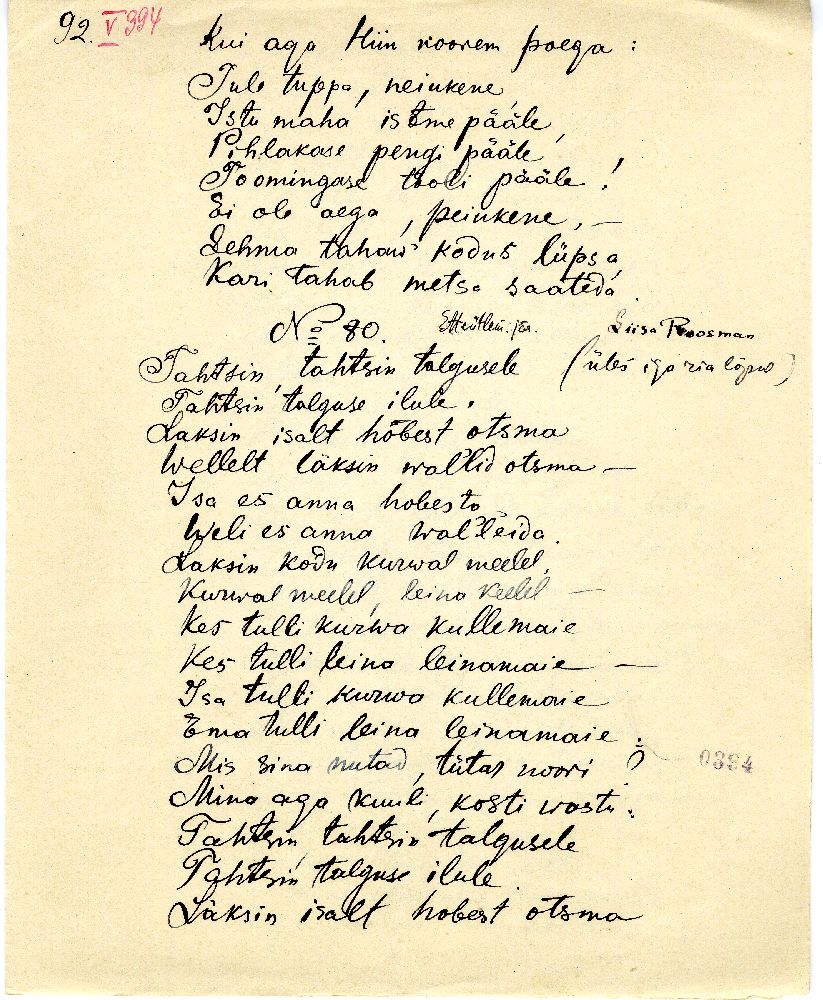 92. V 394
Kui aga Hiin noorem poega :
Tule tuppa, neiukene,
Istu maha istme pääle,
Pihlakase pengi pääle,
Toomingase tooli pääle !
Ei ole aega, peiukene, —
Lehma tahawʼ kodus lüpsa,
Kari tahab metsa saateda.
No 80. Liisa Roosman
Tahtsin, tahtsin talgusele (üles iga rea lõpus)
Tahtsin talguse ilule.
Läksin isalt hõbest otsma
Wellelt läksin wal'lid otsma —
Isa es anna hobesta
Weli es anna wal'leida.
Läksin kodu kurwal meelel,
Kurwal meelel, leina keelel —
Kes tulli kurwa kullemaie
Kes tulli leina leinamaie —
Isa tulli kurwa kullemaie
Ema tulli leina leinamaie :
Mis sina nutad, tütar noori ?
0394
Mina aga kuuli, kosti wastu :
Tahtsin, tahtsin talgusele
Tahtsin talguse ilule.
Läksin isalt hobest otsma